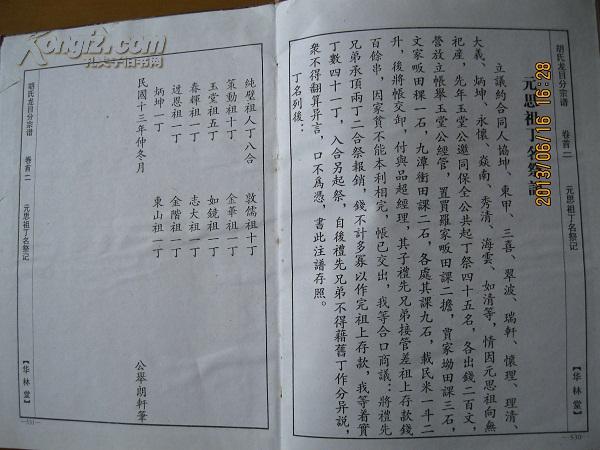 胡氏龙目分宗谱
卷首二
元思祖丁名祭记
【华林堂】
530
元思祖丁名祭記
立議約合同人協坤、東甲、三喜、翠波、瑞軒、懷理、理清、
大義、炳坤、永懷、焱南、秀清、海雲、如清等，情因元思祖向無
祀産，先年玉堂公邀同保全公共起丁祭四十五名，各出錢二百文，
營放立帳舉玉堂公經管，置買羅家畈田課二擔，賈家坳田課三石，
文家畈田稞一石，九潭衝田課二石，各處其課九石，載民米一斗二
升，後將帳交卸，付與品超經理，其子禮先兄弟接管差祖上存款錢
百餘串，因家貧不能本利相完，帳已交出，我等合口商議：將禮先
兄弟承頂兩丁二合祭報銷，錢不計多寡以作完祖上存款，我等着實
丁數四十一丁，入合另起祭，自後禮先兄弟不得藉舊丁作分异說，
衆不得翻算异言，口不爲憑，書此注譜存照。
丁名列後：
純璧祖人丁八合
敦儒祖十丁
策勳祖十丁
金華祖一丁
玉堂祖五丁
如鏡祖一丁
春輝祖一丁
志大祖一丁
邊恩祖一丁
金階祖一丁
炳坤一丁
東山祖一丁
民國十三年仲冬月
公舉朗軒筆
胡氏龙目分宗谱
卷首二
元思祖丁名祭记
【华林堂】
531
Kongfz.com
孔夫子旧书网
2013/06/16 16:28